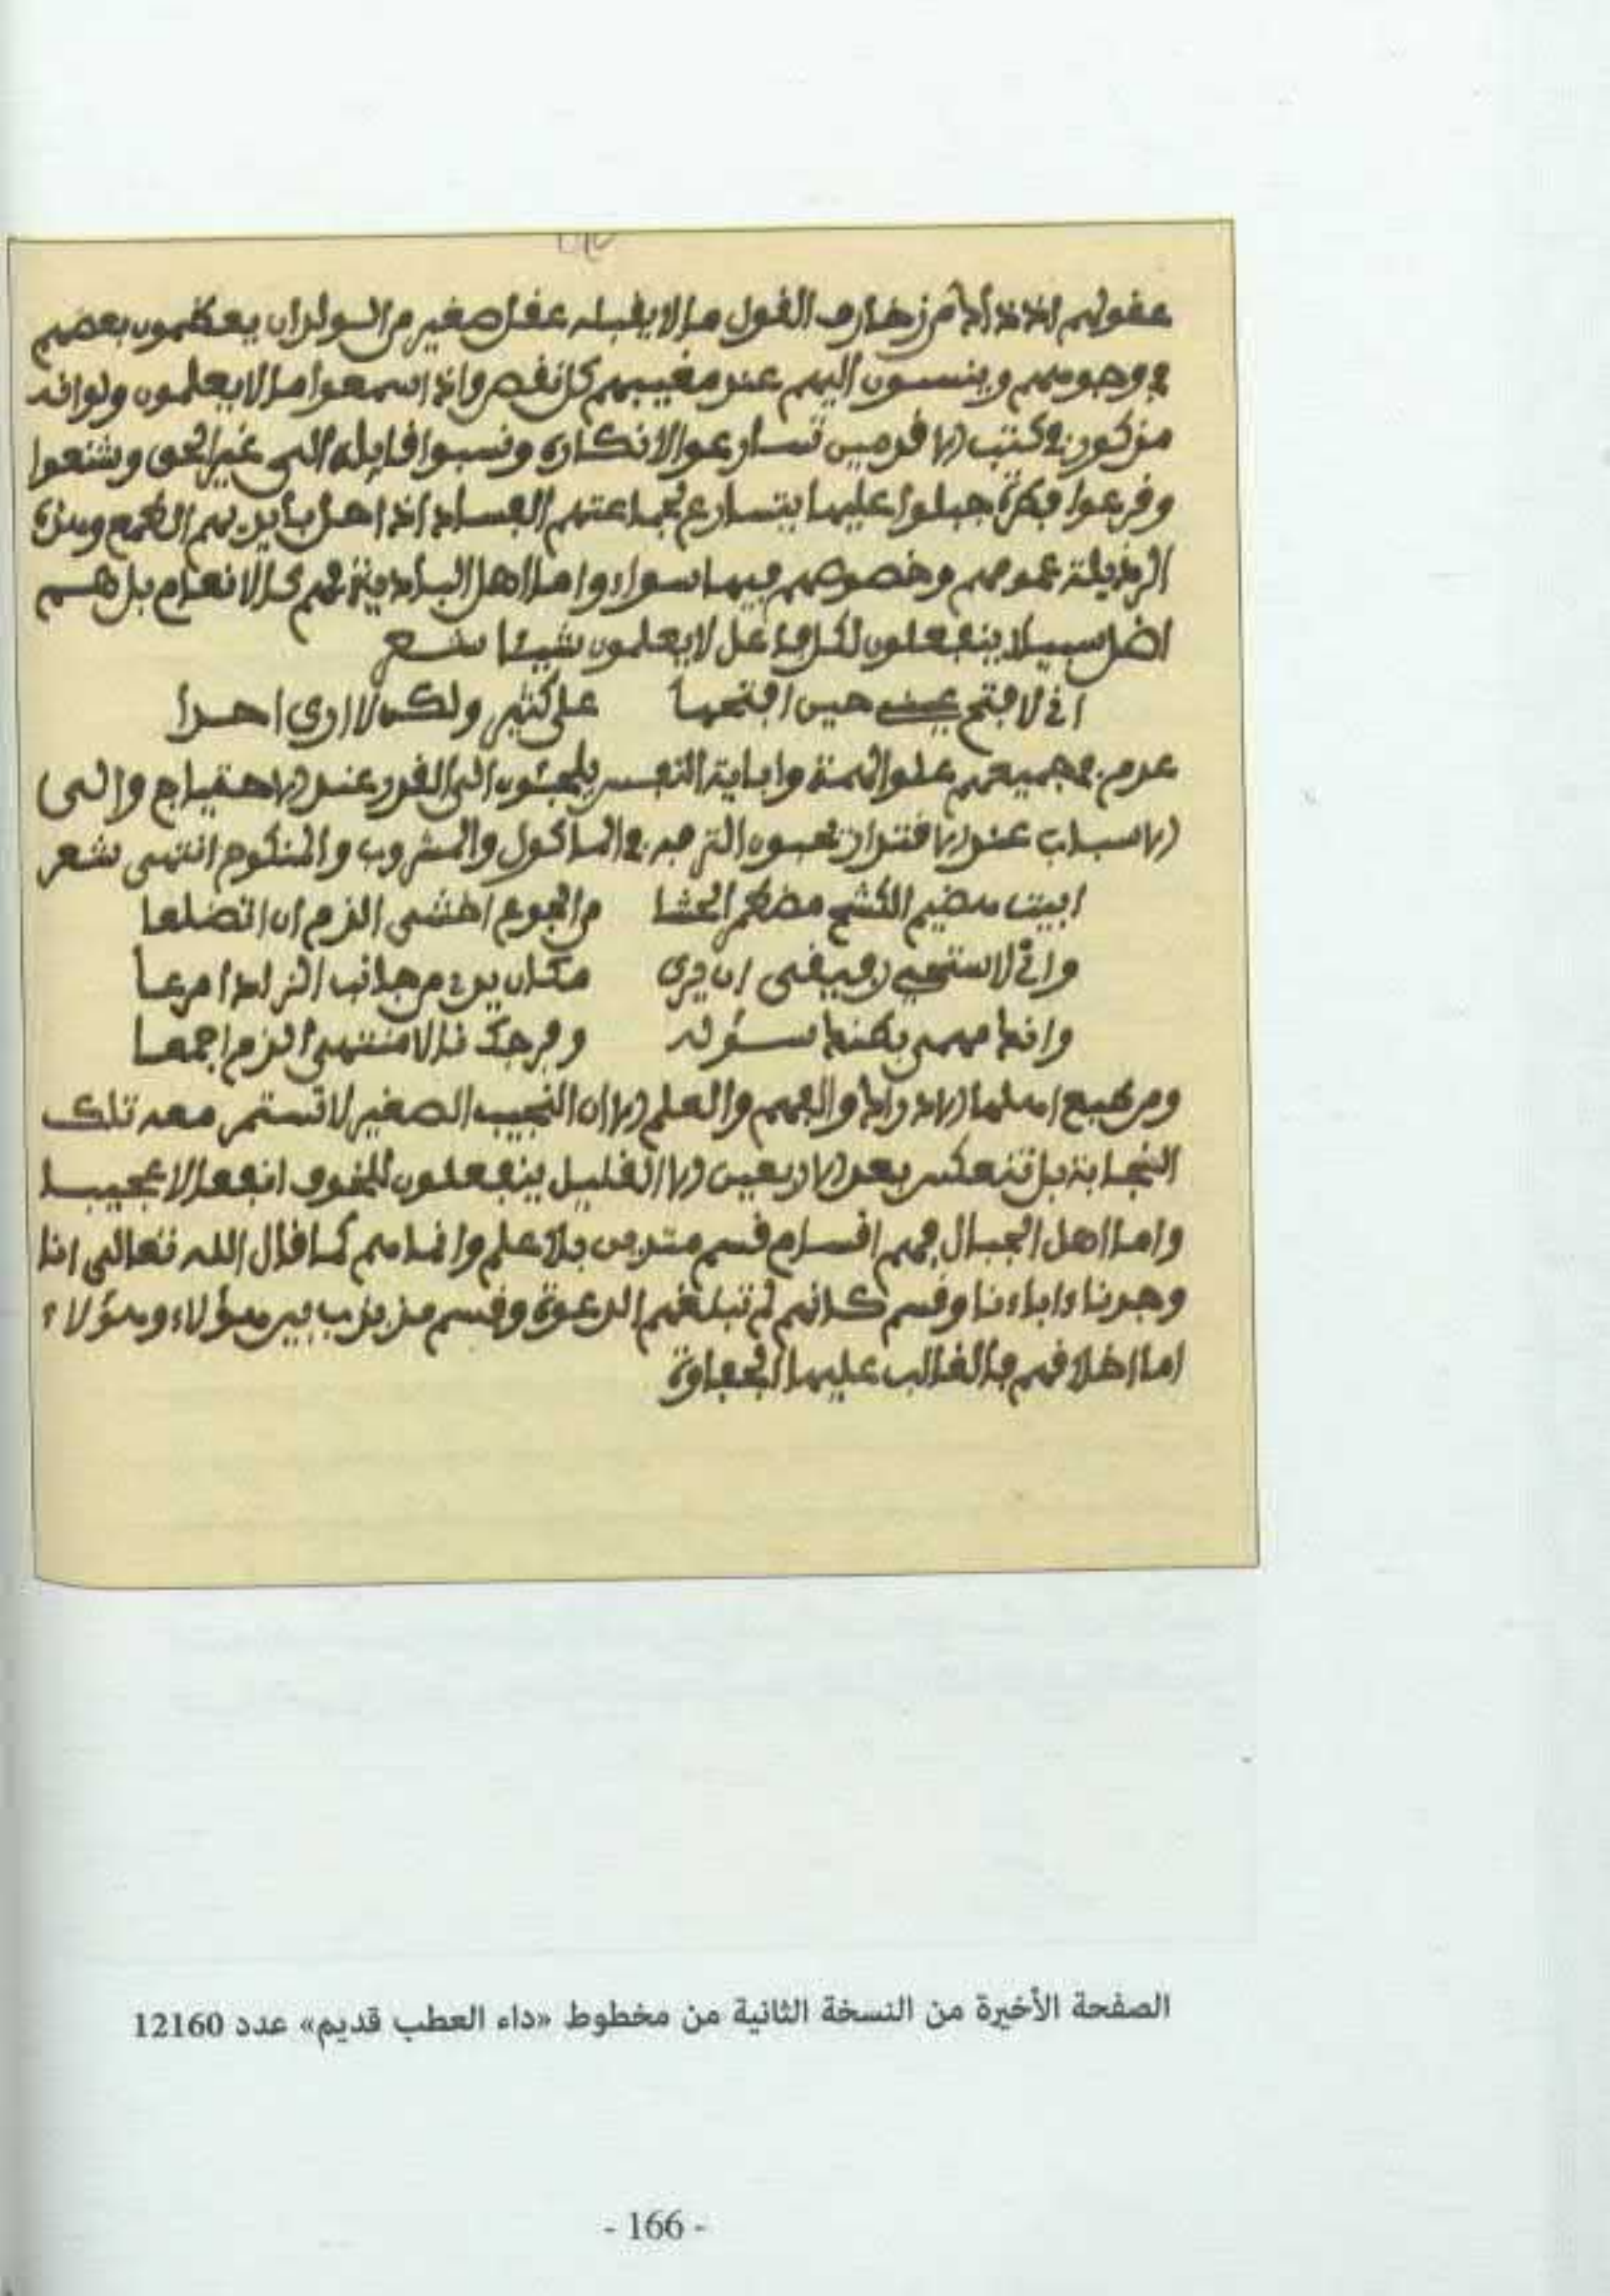 عقولهم اذ ذاك من زخارف القول ما لا يقبله عقل صغير من الولدان يعظمون بعضهم
في وجوههم وينسبون اليهم عند مغيبهم كل نقص واذا سمعوا ما لا يعلمون ولو انه
مذكور في كتب الاقدمين تسارعوا لانكاره ونسبوا قايله الى غير الحق وشنعوا
وفرعوا فكرة جبلوا عليها يتسارع لجماعتهم الفساد اذ اهل باين بهم الطمع وهذه
الرذيلة عمومهم وخصوصهم فيها سواء واما اهل البادية فهم كالانعام بل هم
اضل سبيلا ينفعلون لكل فاعل لا يعلمون شيئا شعر
اني لافتح عيني حين افتحها على كثير ولكن لا ارى احدا
عدم في جميعهم علو الهمة واباية النفس يلجئون الى القدر عند الاحتياج والى
الاسباب عند الاقتدار نحبون الترفه في الماكول والمشروب والمنكوح انتهى شعر
ابيت هضيم الكشح مضطمر الحشا من الجوع اخشى الذم ان اتضلعا
واني لاستحيي رفيقي ان يرى مكان يدي من جانب الزاد اقرعا
وانك مهمى بطنك سؤله وفرجك نالا منتهى الذم اجمعا
ومن طبع اهلها الادراك والفهم والعلم الا ان النجيب الصغير لا تستمر معه تلك
النجابة بل تنعكس بعد الاربعين الا القليل ينفعلون للمخوف انفعالا عجيبا
واما اهل الجبال فهم اقسام قسم متدين بلا علم وانما هم كما قال الله تعالى انا
وجدنا ءاباءنا وقسم كانهم لم تبلغهم الدعوة وقسم مذبذب بين هؤلاء وهؤلاء
اما اخلاقهم فالغالب عليها الجفاوة
الصفحة الأخيرة من النسخة الثانية من مخطوط «داء العطب قديم» عدد 12160
- 166 -